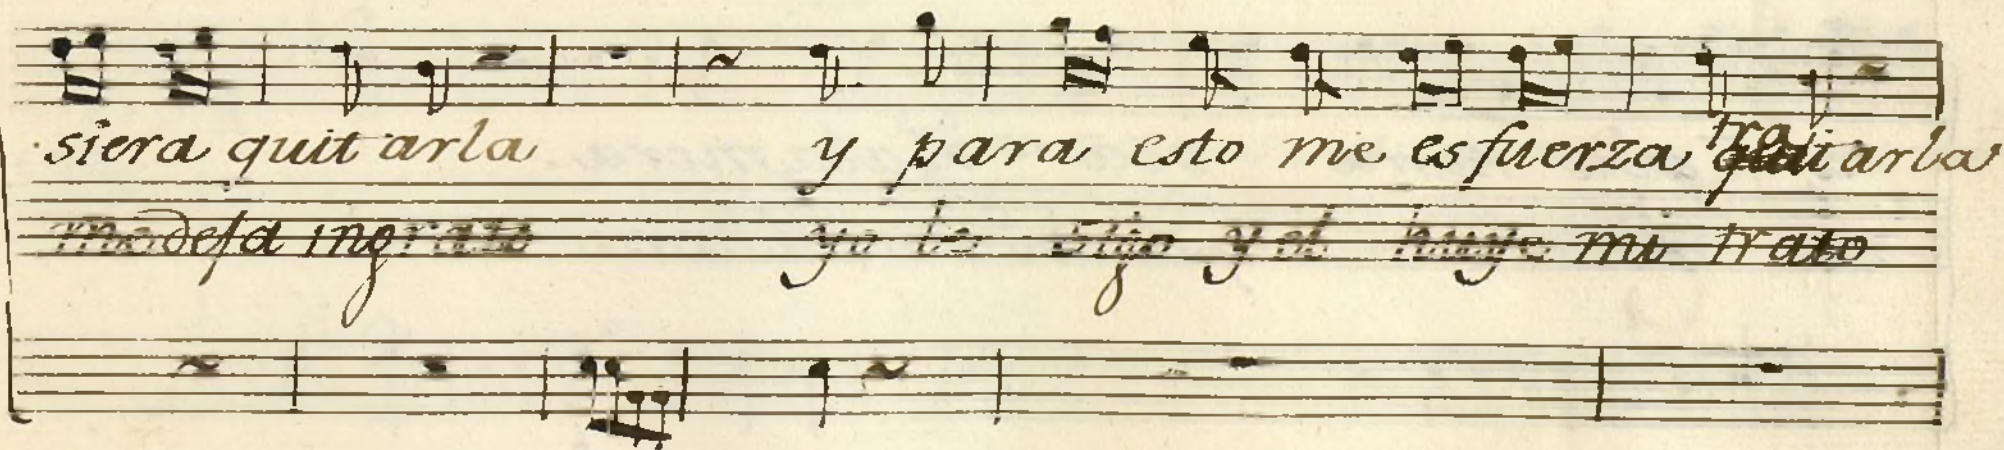 siera quitarla y para esto me esfuerza tratarla
me desa ingrato yo le sigo y el huye mi trato